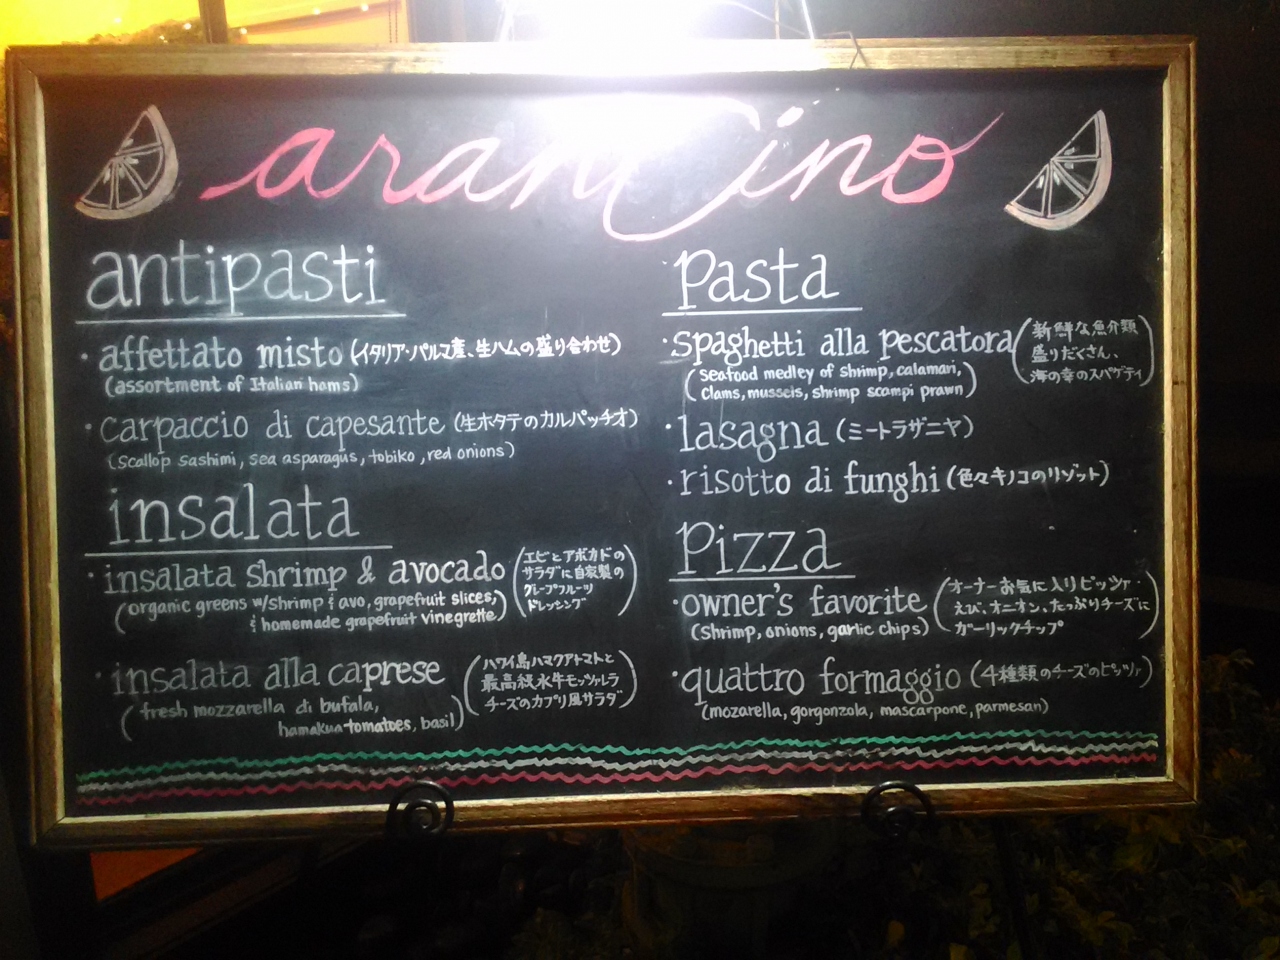 aranCino
antipasti
· affettato misto (イタリア・パルマ産、生ハムの盛り合わせ)
(assortment of Italian hams)
· carpaccio di capesante (生ホタテのカルパッチオ)
(scallop sashimi, sea asparagus, tobiko, red onions)
insalata
· insalata shrimp & avocado
(エビとアボカドの
サラダに自家製の
グレープフルーツ
ドレッシング)
(organic greens w/shrimp & avo, grapefruit slices,
& homemade grapefruit vinegrette)
· insalata alla caprese
(ハワイ島ハマクアトマトと
最高級水牛モッツァレラ
チーズのカプリ風サラダ)
(fresh mozzarella di bufala,
hamakua tomatoes, basil)
Pasta
· spaghetti alla pescatora
(新鮮な魚介類
盛りだくさん、
海の幸のスパゲティ)
(seafood medley of shrimp, calamari,
clams, mussels, shrimp scampi prawn)
· lasagna (ミートラザニヤ)
· risotto di funghi (色々キノコのリゾット)
Pizza
· owner's favorite
(オーナーお気に入りピッツァ・
えび、オニオン、たっぷりチーズに
ガーリックチップ)
(shrimp, onions, garlic chips)
· quattro formaggio (4種類のチーズのピッツァ)
(mozarella, gorgonzola, mascarpone, parmesan)